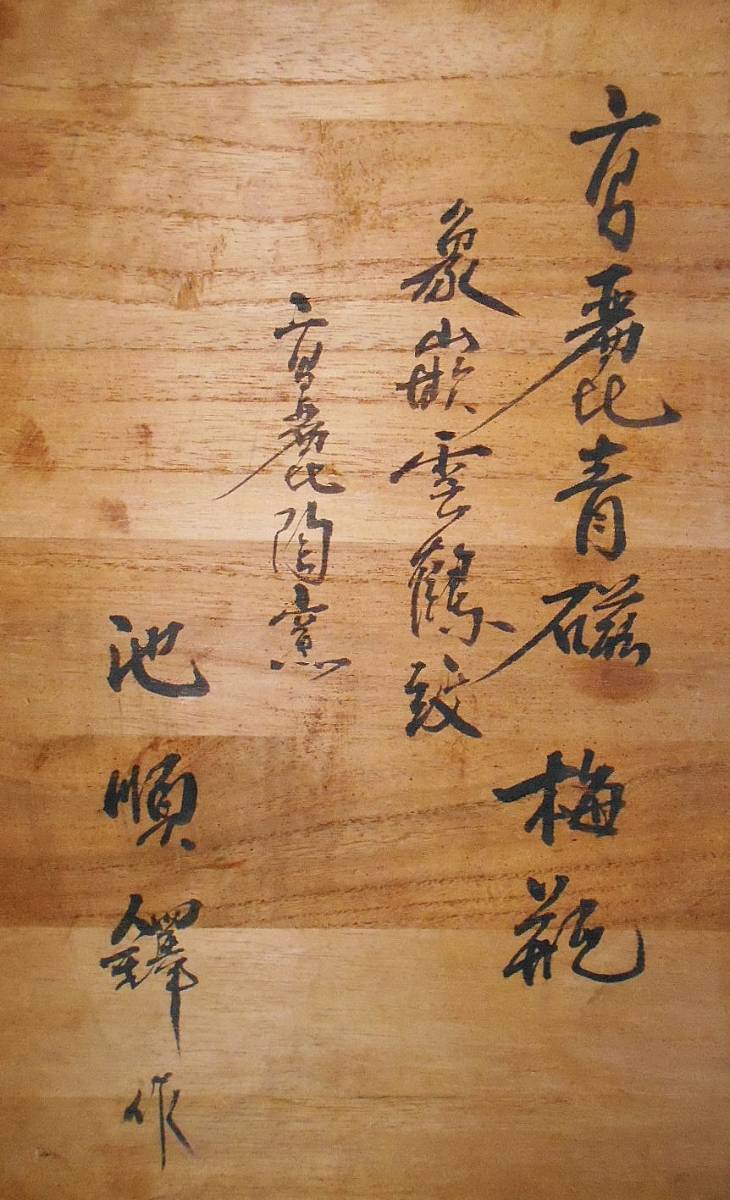 高麗青磁 梅瓶
象嵌雲鶴紋
高麗陶窯
池順鐸作